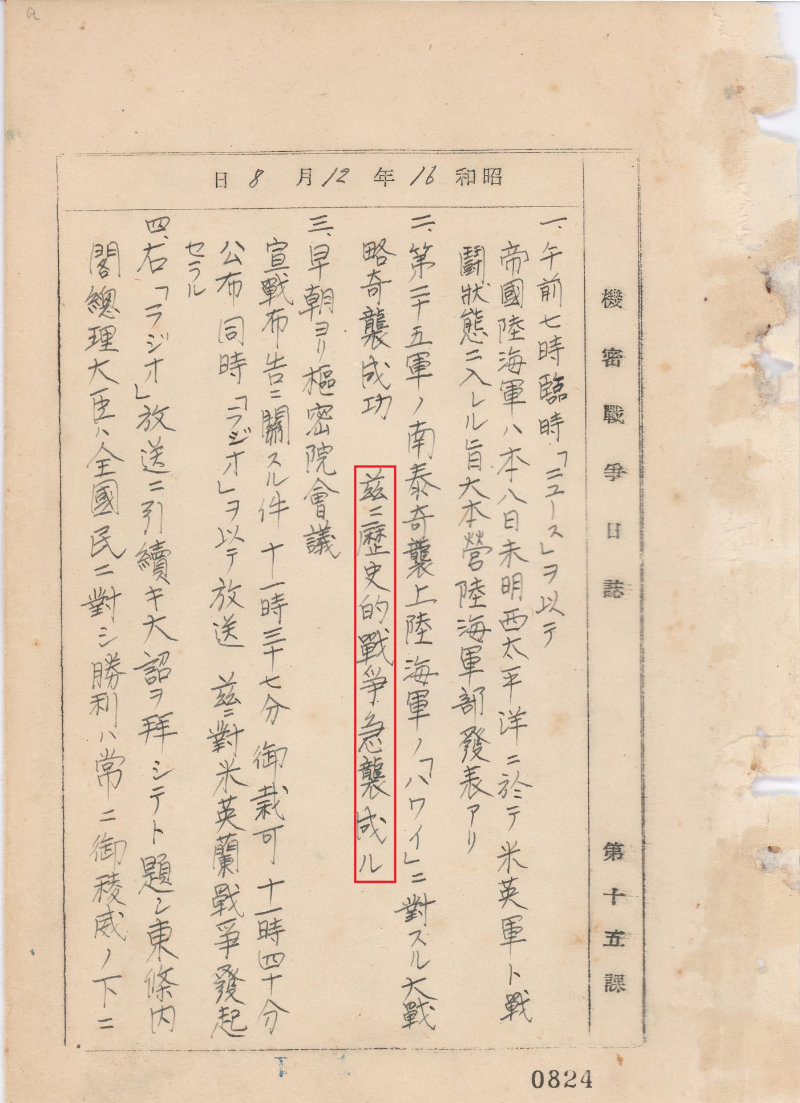 機密戰爭日誌 第十五課
昭和16年12月8日
一、午前七時臨時「ニュース」ヲ以テ
帝國陸海軍ハ本八日未明西太平洋ニ於テ米英軍ト戰
鬪狀態ニ入レル旨大本營陸海軍部發表アリ
二、第二十五軍ノ南泰奇襲上陸海軍ノ「ハワイ」ニ對スル大戰
略奇襲成功 玆ニ歷史的戰爭急襲成ル
三、早朝ヨリ樞密院會議
宣戰布告ニ關スル件 十一時三十七分 御裁可 十一時四十分
公布 同時「ラジオ」ヲ以テ放送 玆ニ對米英蘭戰爭發起
セラル
四、右「ラジオ」放送ニ引續キ大詔ヲ拜シテト題シ東條内
閣總理大臣ハ全國民ニ對シ勝利ハ常ニ御稜威ノ下ニ
0824